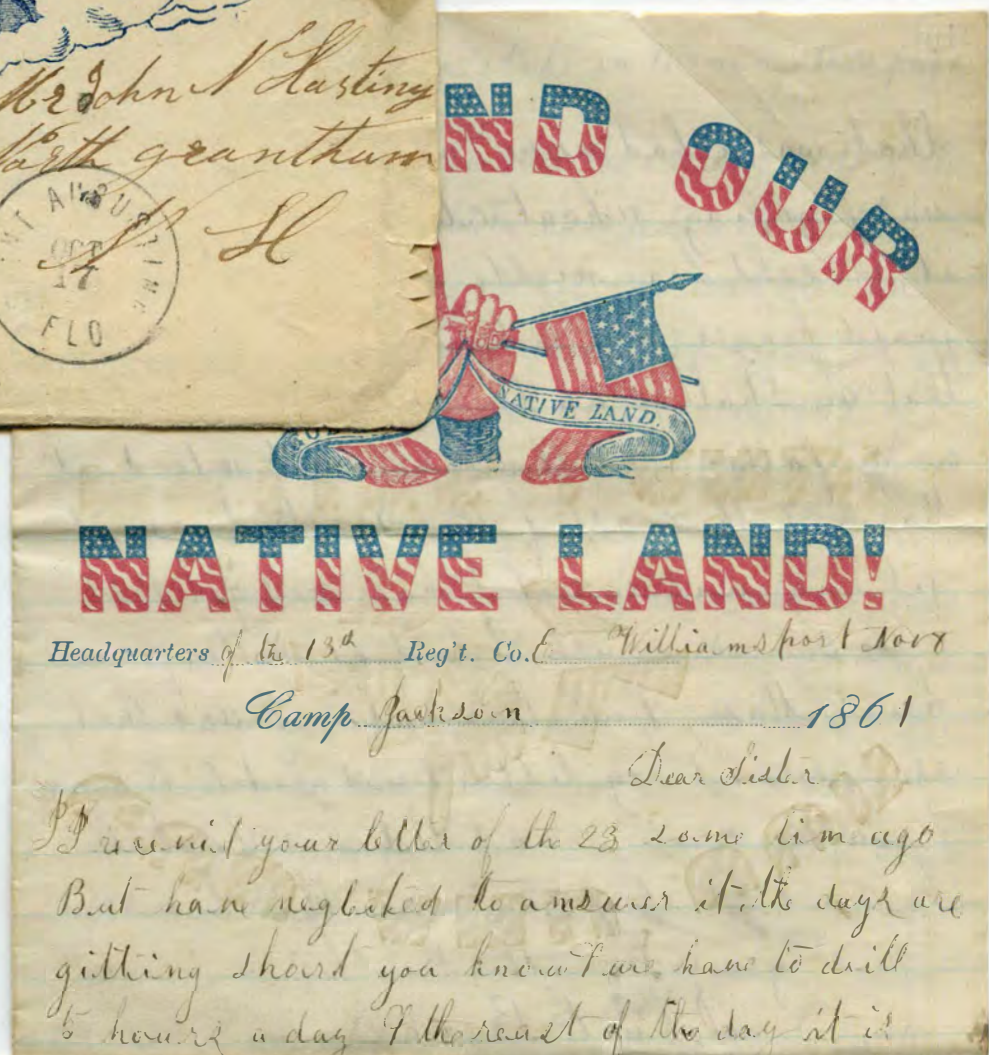 Mr John N Hasting
North grantham
N H
SAINT AUGUSTINE
OCT
17
FLO
AND OUR
NATIVE LAND.
NATIVE LAND!
Headquarters of the 13th Reg't. Co. E Williamsport Nov
Camp Jackson 1861
Dear Sister
I received your letter of the 23 some tim ago
But have neglected to amswer it. the days are
gitting short you know & we have to drill
5 hours a day & the reast of the day it is